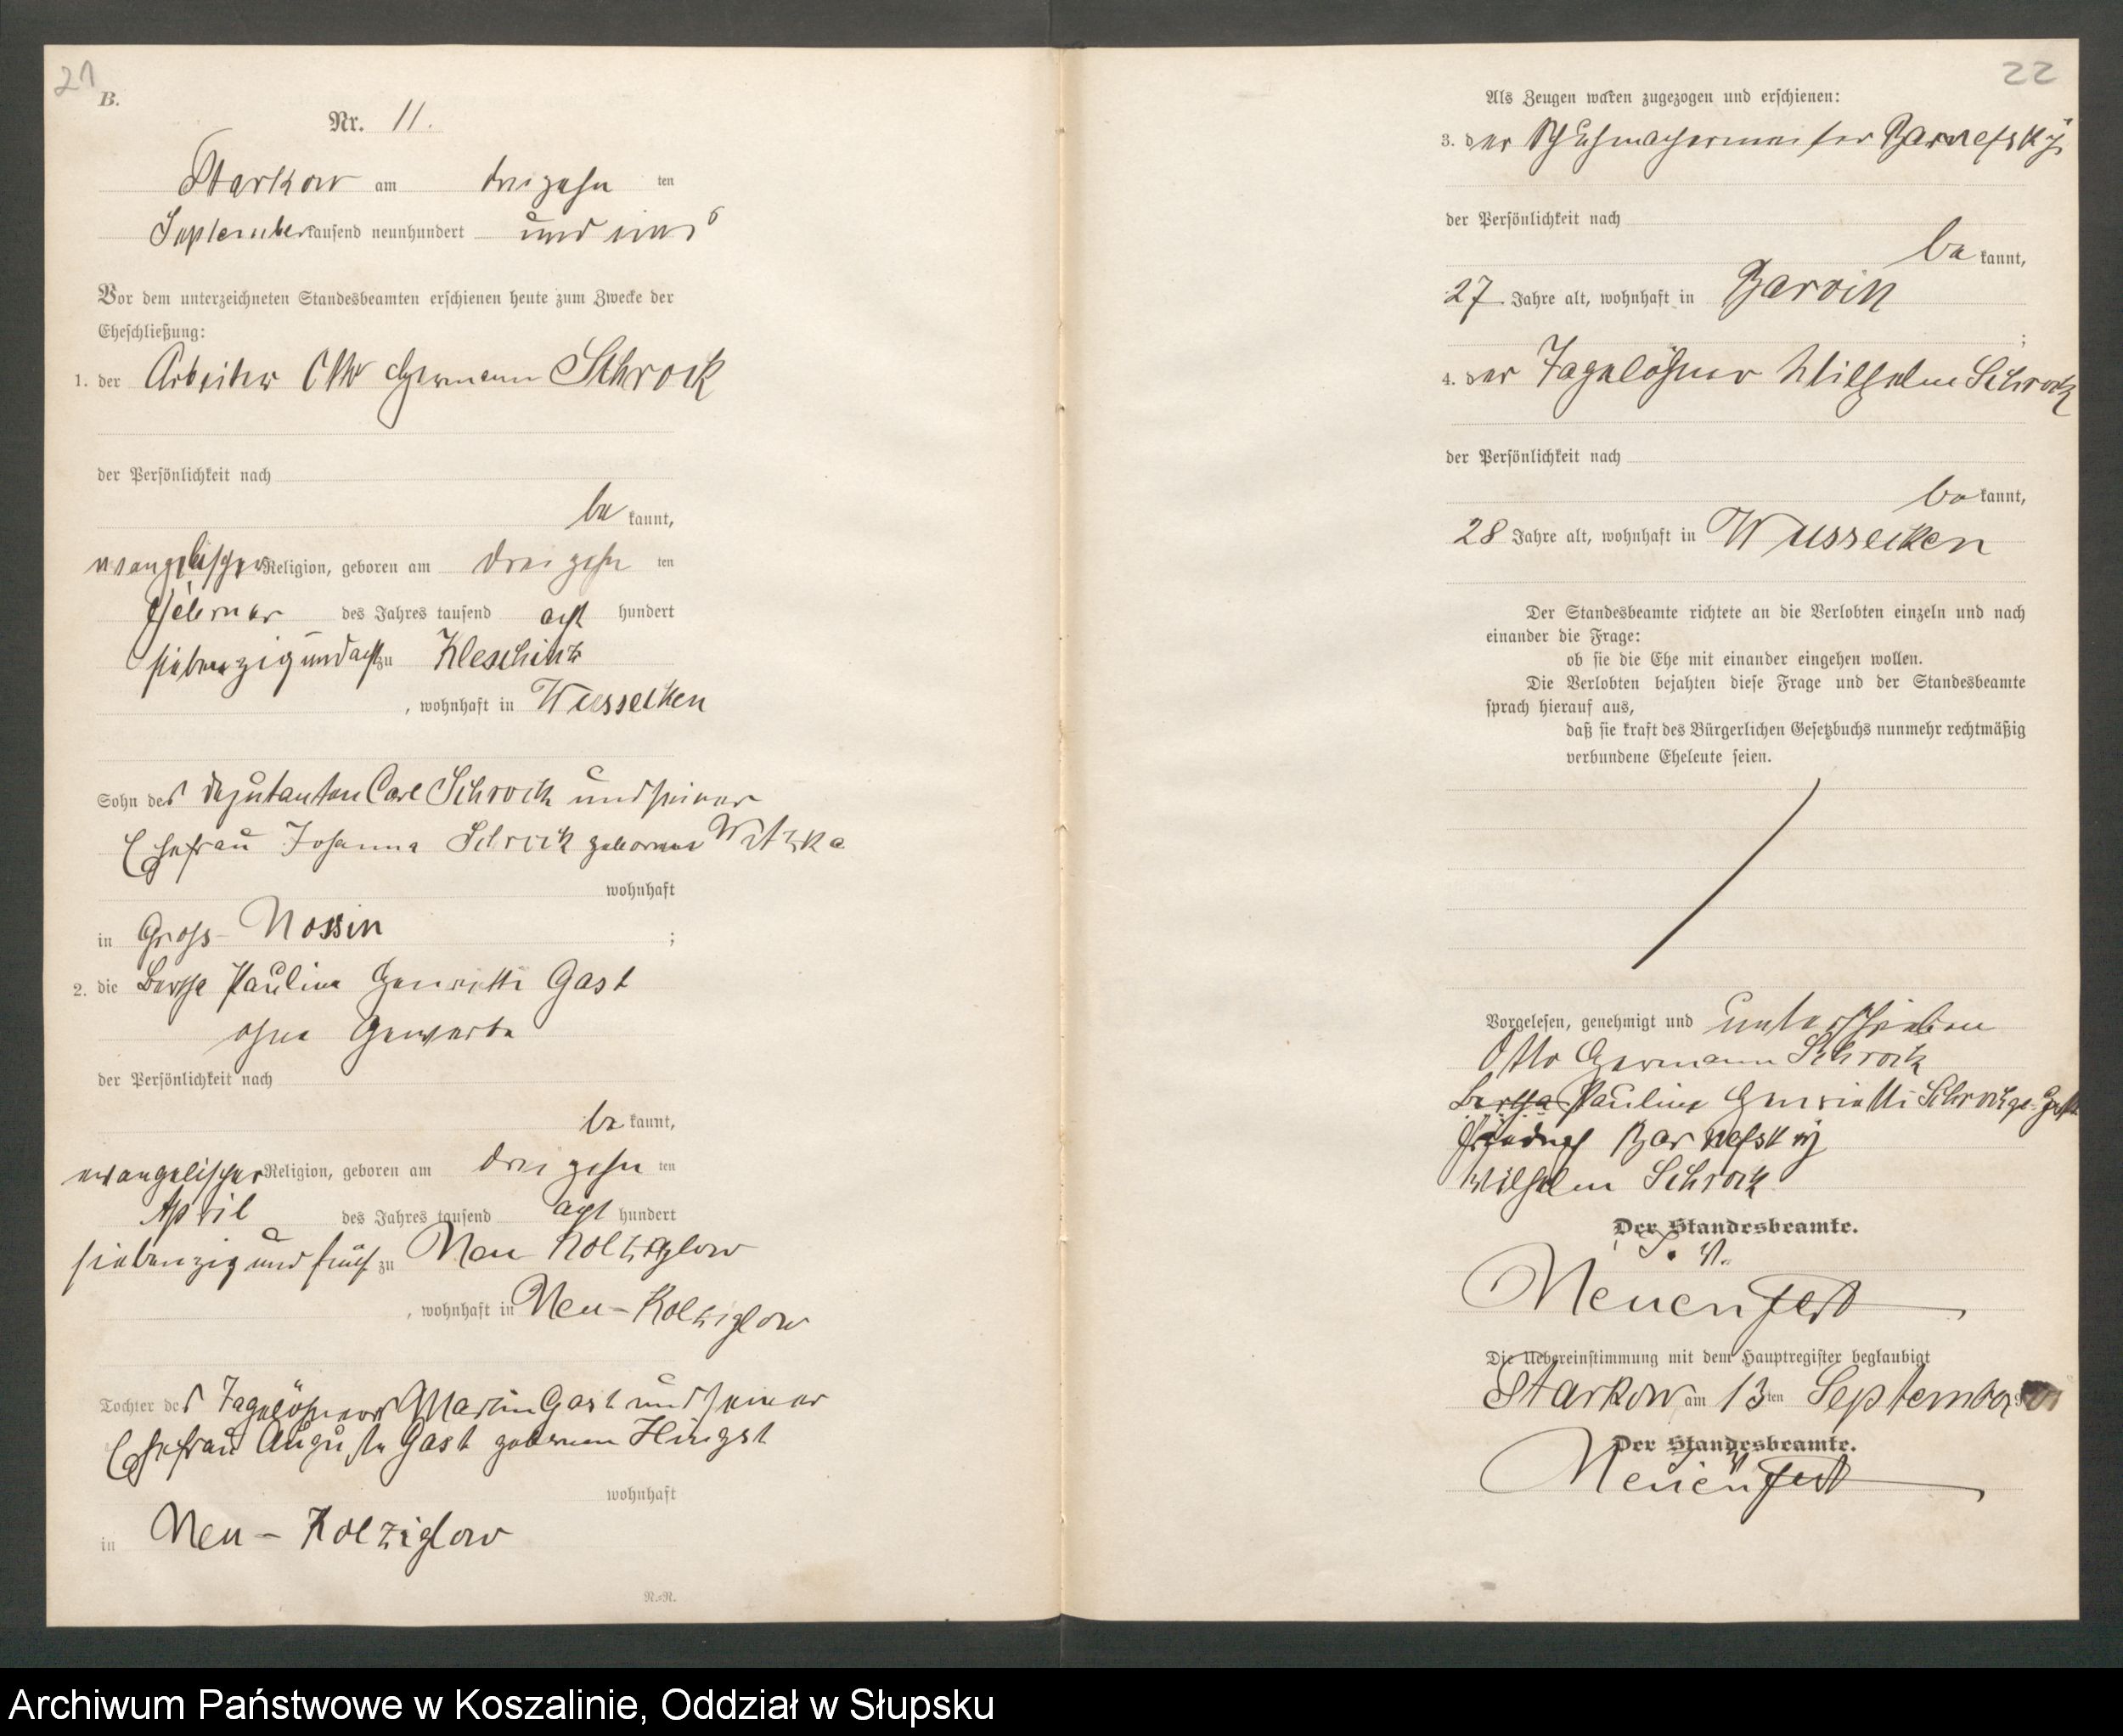 21
B.
Nr. 11.
Starkow am dreizehn ten
September tausend neunhundert und eins
Vor dem unterzeichneten Standesbeamten erschienen heute zum Zwecke der
Eheschließung:
1. der Arbeiter Otto Hermann Schrock
der Persönlichkeit nach
be kannt,
evangelischer Religion, geboren am dreizehn ten
Februar des Jahres tausend acht hundert
siebenzig und acht zu Kleschintz
, wohnhaft in Wussecken
Sohn des Deputanten Carl Schrock und seiner
Ehefrau Johanna Schrock geborene Witzke
wohnhaft
in Gross-Nossin ;
2. die Bertha Pauline Henriette Gast
ohne Gewerbe
der Persönlichkeit nach
be kannt,
evangelischer Religion, geboren am dreizehn ten
April des Jahres tausend acht hundert
siebenzig und fünf zu Neu Kolziglow
, wohnhaft in Neu-Kolziglow
Tochter des Tagelöhners Martin Gast und seiner
Ehefrau Auguste Gast geborenen Hingst
wohnhaft
in Neu-Kolziglow
N.=N.
22
Als Zeugen waren zugezogen und erschienen:
3. der Schuhmachermeister Barnefsky
der Persönlichkeit nach
be kannt,
27 Jahre alt, wohnhaft in Barvin
;
4. der Tagelöhner Wilhelm Schrock
der Persönlichkeit nach
be kannt,
28 Jahre alt, wohnhaft in Wussecken
Der Standesbeamte richtete an die Verlobten einzeln und nach
einander die Frage:
ob sie die Ehe mit einander eingehen wollen.
Die Verlobten bejahten diese Frage und der Standesbeamte
sprach hierauf aus,
daß sie kraft des Bürgerlichen Gesetzbuchs nunmehr rechtmäßig
verbundene Eheleute seien.
Vorgelesen, genehmigt und unterschrieben
Otto Hermann Schrock
Bertha Pauline Henriette Schrock ge. Gast
Friedrich Barnefsky
Wilhelm Schrock
Der Standesbeamte.
Neuenfest
Die Uebereinstimmung mit dem Hauptregister beglaubigt
Starkow am 13 ten September
Der Standesbeamte.
Neuenfest
Archiwum Państwowe w Koszalinie, Oddział w Słupsku